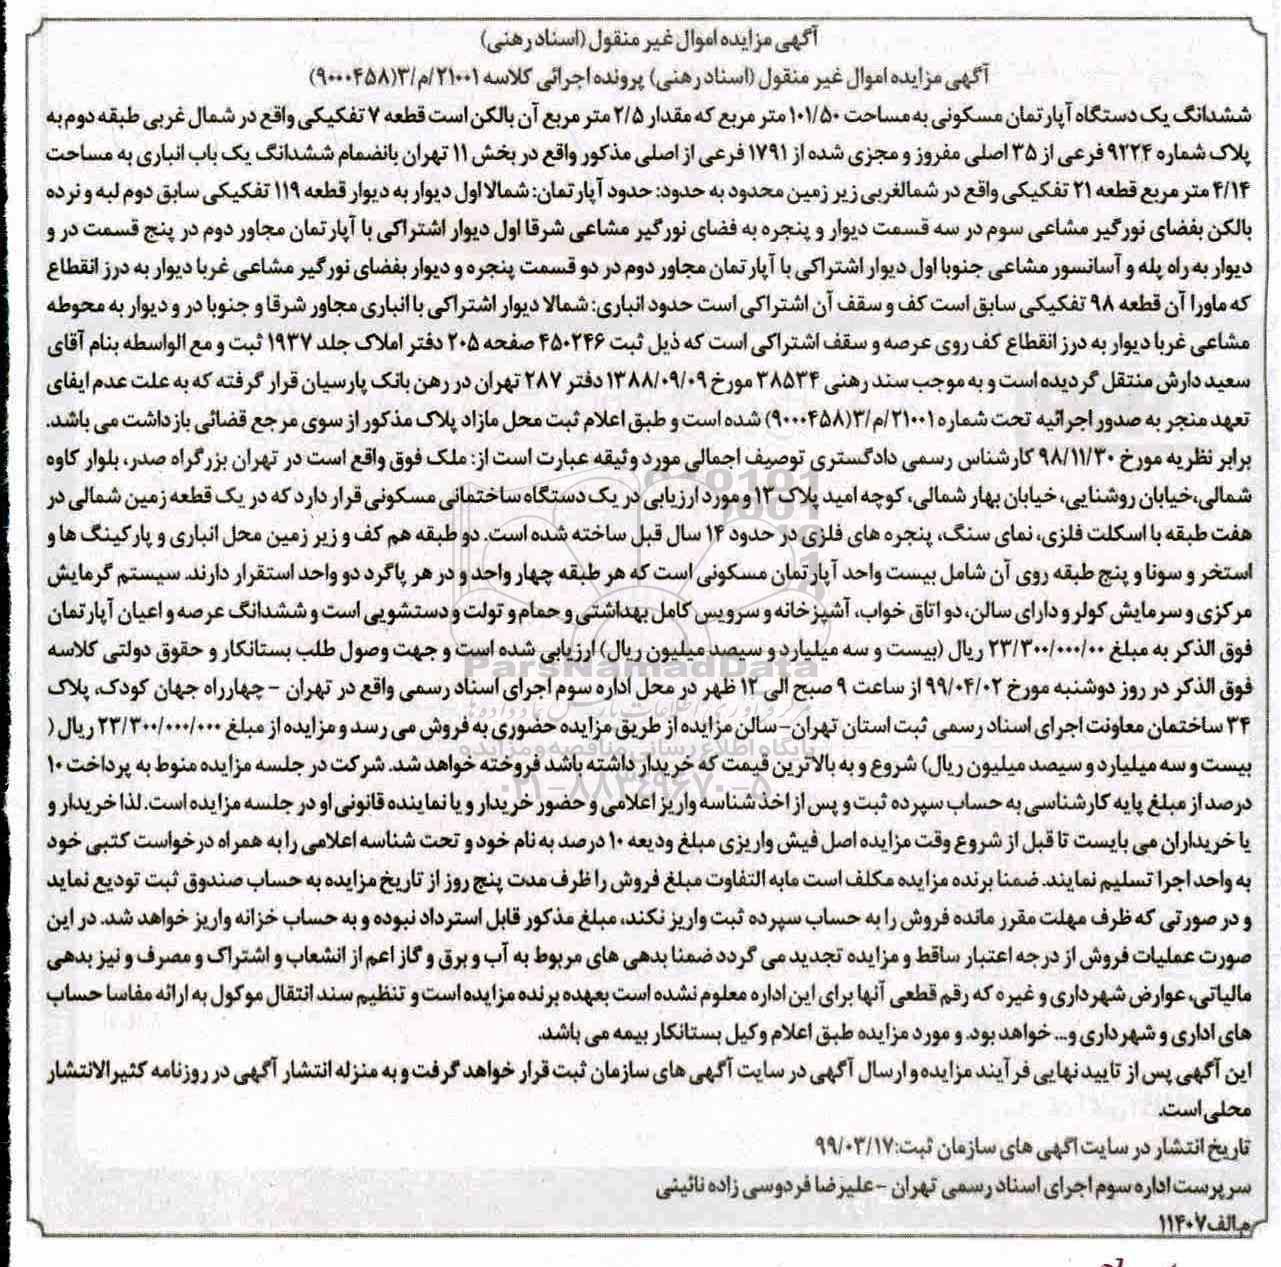 آگهی مزایده اموال غیر منقول (اسناد رهنی)
آگهی مزایده اموال غیر منقول (اسناد رهنی) پرونده اجرائی کلاسه ۲۱۰۰۱/م/۳(۹۰۰۰۴۵۸)
ششدانگ یک دستگاه آپارتمان مسکونی به مساحت ۱۰۱/۵۰ متر مربع که مقدار ۲/۵ متر مربع آن بالکن است قطعه ۷ تفکیکی واقع در شمال غربی طبقه دوم به
پلاک شماره ۹۲۲۴ فرعی از ۳۵ اصلی مفروز و مجزی شده از ۱۷۹۱ فرعی از اصلی مذکور واقع در بخش ۱۱ تهران بانضمام ششدانگ یک باب انباری به مساحت
۴/۱۴ متر مربع قطعه ۲۱ تفکیکی واقع در شمالغربی زیر زمین محدود به حدود: حدود آپارتمان: شمالا اول دیوار به دیوار قطعه ۱۱۹ تفکیکی سابق دوم لبه و نرده
بالکن بفضای نورگیر مشاعی سوم در سه قسمت دیوار و پنجره به فضای نورگیر مشاعی شرقا اول دیوار اشتراکی با آپارتمان مجاور دوم در پنج قسمت در و
دیوار به راه پله و آسانسور مشاعی جنوبا اول دیوار اشتراکی با آپارتمان مجاور دوم در دو قسمت پنجره و دیوار بفضای نورگیر مشاعی غربا دیوار به درز انقطاع
که ماورا آن قطعه ۹۸ تفکیکی سابق است کف و سقف آن اشتراکی است حدود انباری: شمالا دیوار اشتراکی با انباری مجاور شرقا و جنوبا در و دیوار به محوطه
مشاعی غربا دیوار به درز انقطاع کف روی عرصه و سقف اشتراکی است که ذیل ثبت ۴۵۰۲۴۶ صفحه ۲۰۵ دفتر املاک جلد ۱۹۳۷ ثبت و مع الواسطه بنام آقای
سعید دارش منتقل گردیده است و به موجب سند رهنی ۳۸۵۳۴ مورخ ۱۳۸۸/۰۹/۰۹ دفتر ۲۸۷ تهران در رهن بانک پارسیان قرار گرفته که به علت عدم ایفای
تعهد منجر به صدور اجرائیه تحت شماره ۲۱۰۰۱/م/۳(۹۰۰۰۴۵۸) شده است و طبق اعلام ثبت محل مازاد پلاک مذکور از سوی مرجع قضائی بازداشت می باشد.
برابر نظریه مورخ ۹۸/۱۱/۳۰ کارشناس رسمی دادگستری توصیف اجمالی مورد وثیقه عبارت است از: ملک فوق واقع است در تهران بزرگراه صدر، بلوار کاوه
شمالی،خیابان روشنایی، خیابان بهار شمالی، کوچه امید پلاک ۱۳ و مورد ارزیابی در یک دستگاه ساختمانی مسکونی قرار دارد که در یک قطعه زمین شمالی در
هفت طبقه با اسکلت فلزی، نمای سنگ، پنجره های فلزی در حدود ۱۴ سال قبل ساخته شده است. دو طبقه هم کف و زیر زمین محل انباری و پارکینگ ها و
استخر و سونا و پنج طبقه روی آن شامل بیست واحد آپارتمان مسکونی است که هر طبقه چهار واحد و در هر پاگرد دو واحد استقرار دارند. سیستم گرمایش
مرکزی و سرمایش کولر و دارای سالن، دو اتاق خواب، آشپزخانه و سرویس کامل بهداشتی و حمام و تولت و دستشویی است و ششدانگ عرصه و اعیان آپارتمان
فوق الذکر به مبلغ ۲۳/۳۰۰/۰۰۰/۰۰ ریال (بیست و سه میلیارد و سیصد میلیون ریال) ارزیابی شده است و جهت وصول طلب بستانکار و حقوق دولتی کلاسه
فوق الذکر در روز دوشنبه مورخ ۹۹/۰۴/۰۲ از ساعت ۹ صبح الی ۱۲ ظهر در محل اداره سوم اجرای اسناد رسمی واقع در تهران - چهارراه جهان کودک، پلاک
۳۴ ساختمان معاونت اجرای اسناد رسمی ثبت استان تهران- سالن مزایده از طریق مزایده حضوری به فروش می رسد و مزایده از مبلغ ۲۳/۳۰۰/۰۰۰/۰۰۰ ریال (
بیست و سه میلیارد و سیصد میلیون ریال) شروع و به بالاترین قیمت که خریدار داشته باشد فروخته خواهد شد. شرکت در جلسه مزایده منوط به پرداخت ۱۰
درصد از مبلغ پایه کارشناسی به حساب سپرده ثبت و پس از اخذ شناسه واریز اعلامی و حضور خریدار و یا نماینده قانونی او در جلسه مزایده است. لذا خریدار و
یا خریداران می بایست تا قبل از شروع وقت مزایده اصل فیش واریزی مبلغ ودیعه ۱۰ درصد به نام خود و تحت شناسه اعلامی را به همراه درخواست کتبی خود
به واحد اجرا تسلیم نمایند. ضمنا برنده مزایده مکلف است مابه التفاوت مبلغ فروش را ظرف مدت پنج روز از تاریخ مزایده به حساب صندوق ثبت تودیع نماید
و در صورتی که ظرف مهلت مقرر مانده فروش را به حساب سپرده ثبت واریز نکند، مبلغ مذکور قابل استرداد نبوده و به حساب خزانه واریز خواهد شد. در این
صورت عملیات فروش از درجه اعتبار ساقط و مزایده تجدید می گردد ضمنا بدهی های مربوط به آب و برق و گاز اعم از انشعاب و اشتراک و مصرف و نیز بدهی
مالیاتی، عوارض شهرداری و غیره که رقم قطعی آنها برای این اداره معلوم نشده است بعهده برنده مزایده است و تنظیم سند انتقال موکول به ارائه مفاسا حساب
های اداری و شهرداری و... خواهد بود. و مورد مزایده طبق اعلام وکیل بستانکار بیمه می باشد.
این آگهی پس از تایید نهایی فرآیند مزایده و ارسال آگهی در سایت آگهی های سازمان ثبت قرار خواهد گرفت و به منزله انتشار آگهی در روزنامه کثیرالانتشار
محلی است.
تاریخ انتشار در سایت اگهی های سازمان ثبت:۹۹/۰۳/۱۷
سرپرست اداره سوم اجرای اسناد رسمی تهران - علیرضا فردوسی زاده نائینی
م.الف۱۱۴۰۷
ParsNamadData
پایگاه اطلاع رسانی مناقصه و مزایده
۰۲۱-۸۸۳۴۹۶۷۰-۵